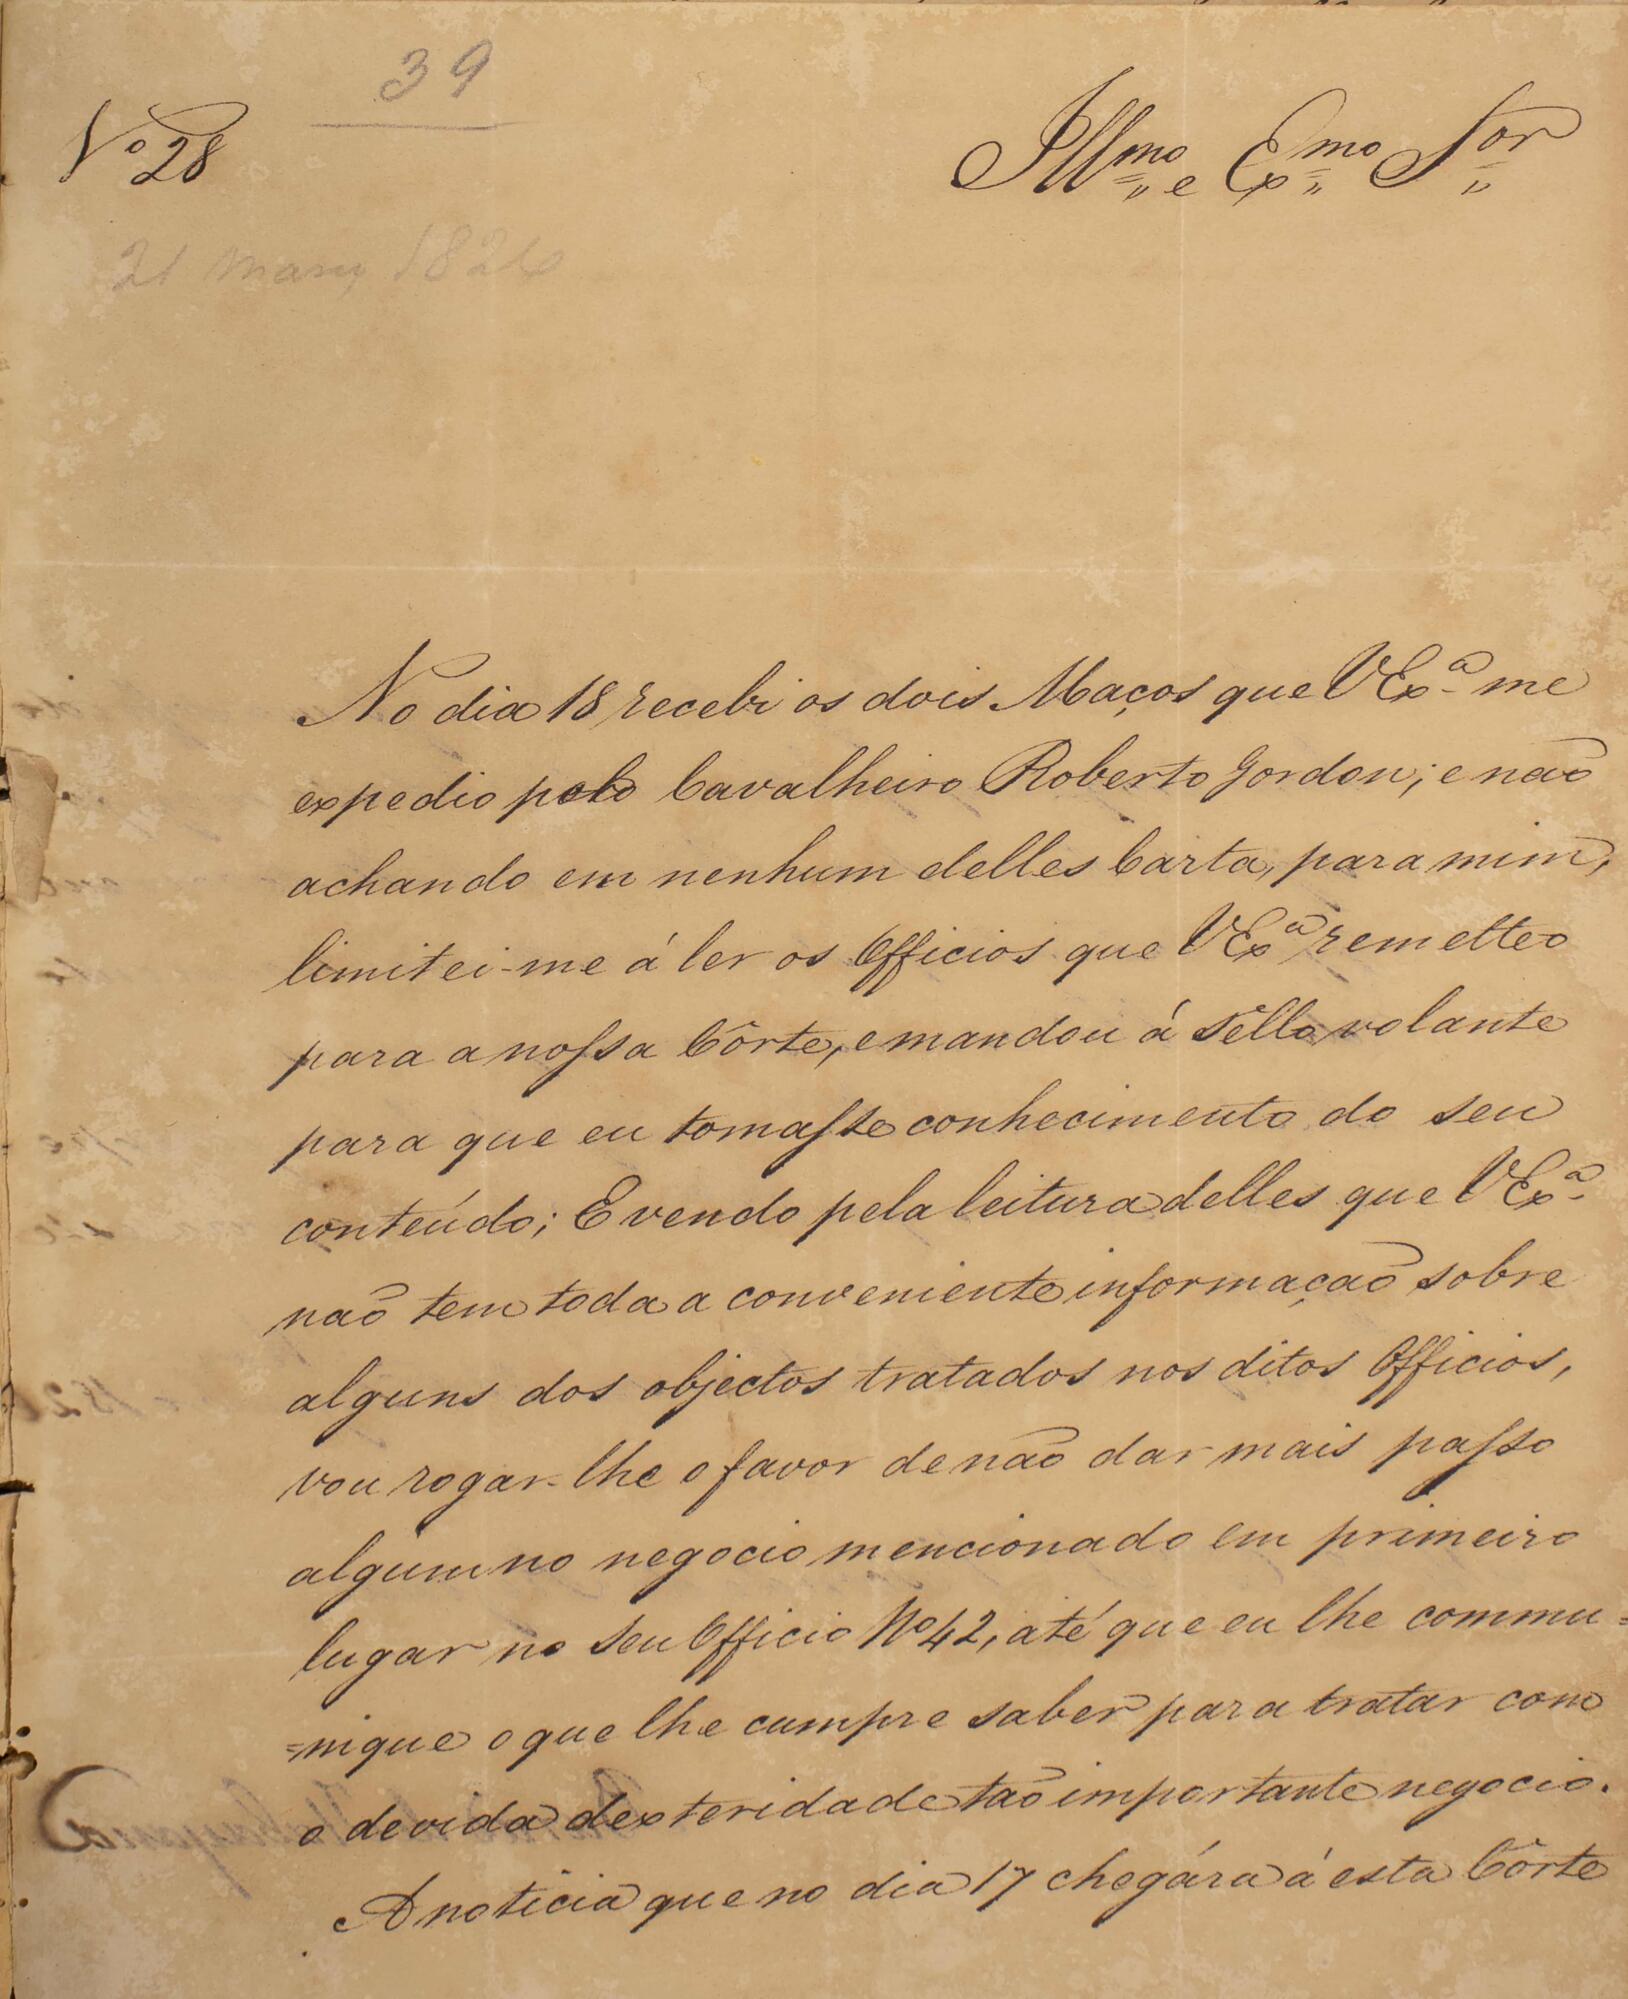 39
Nº 28
Illmo e Exmo Sor
21 Março 1826
No dia 18 recebi os dois Maços que VExª me
expedio pelo Cavalheiro Roberto Gordon; e não
achando em nenhum delles Carta, para mim,
limitei-me á ler os Officios que VExª remetteo
para a nossa Côrte, e mandou á Sêllo volante
para que eu tomasse conhecimento do seu
conteúdo; E vendo pela leitura delles que VExª
não tem toda a conveniente informação sobre
alguns dos objectos tratados nos ditos Officios,
vou rogar-lhe o favor de não dar mais passo
algum no negocio mencionado em primeiro
lugar no seu Officio Nº 42, até que eu lhe commu=
=nique o que lhe cumpre saber para tratar com
a devida dexteridade tão importante negocio.
A noticia que no dia 17 chegára á esta Côrte